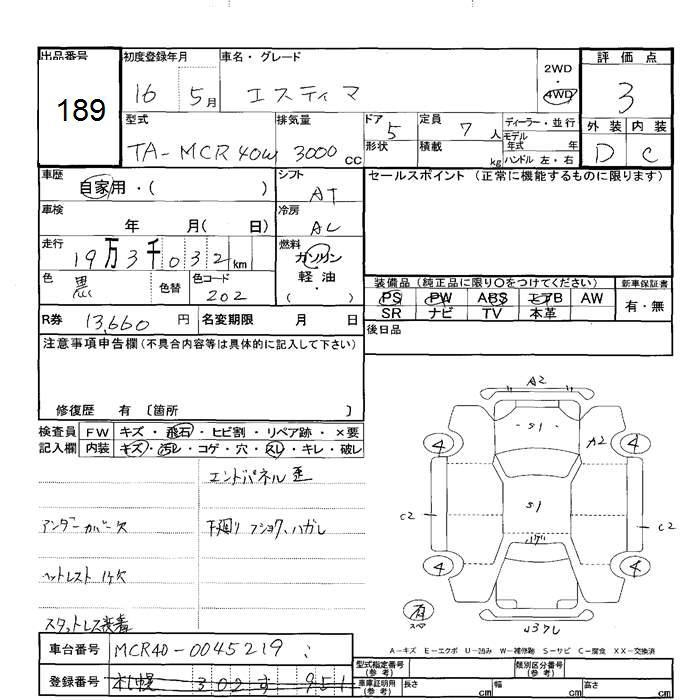 出品番号
189
初度登録年月
16 5月
車名・グレード
エスティマ
2WD
・
4WD
評価点
3
型式
TA-MCR40W
排気量
3000 CC
ドア 5
形状
定員 7 人
積載 kg
ディーラー・並行
モデル
年式 年
ハンドル 左・右
外装 内装
D C
車歴
自家用・( )
シフト
AT
セールスポイント (正常に機能するものに限ります)
車検
年 月( 日)
冷房
AC
走行
19万3千032km
燃料
ガソリン
軽・油
( )
色
黒
色替
色コード
202
装備品 (純正品に限り○をつけてください)
PS PW ABS エアB AW
SR ナビ TV 本革
新車保証書
有・無
R券 13,660 円
名変期限 月 日
後日品
注意事項申告欄(不具合内容等は具体的に記入して下さい)
修復歴 有 〔箇所 〕
検査員
記入欄
FW キズ・飛石・ヒビ割・リペア跡・×要
内装 キズ・汚レ・コゲ・穴・スレ・キレ・破レ
エンドパネル歪
アンダーカバー欠
下廻り フショク、ハガレ
ヘットレスト 1ケ欠
スタットレス装着
A2
S1
A2
4 4
C2
S1
C2
ハゲ
4 4
有
スペア
A-キズ E-エクボ U-凹み W-補修跡 S-サビ C-腐食 XX-交換済
車台番号 MCR40-0045219
登録番号 札幌 302 す 951
型式指定番号
(参考)
類別区分番号
(参考)
車庫証明用
(参考)
長さ cm
幅 cm
高さ cm